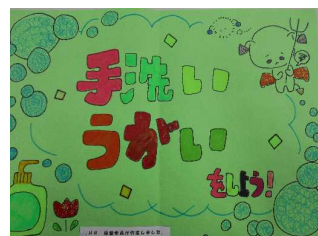 手洗い
うがい
をしよう!